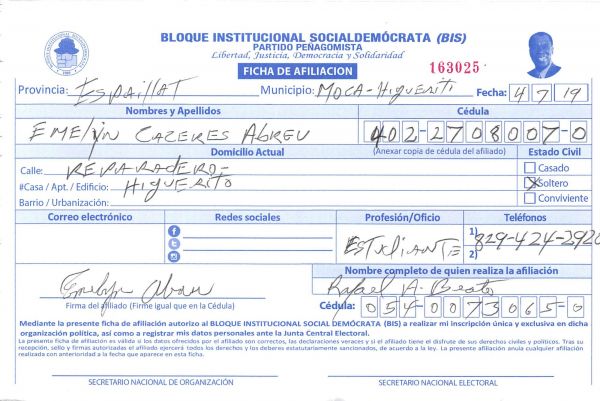 BLOQUE INSTITUCIONAL SOCIALDEMÓCRATA (BIS)
PARTIDO PEÑAGOMISTA
Libertad, Justicia, Democracia y Solidaridad
FICHA DE AFILIACION
163025
Provincia: ESPAILLAT Municipio: MOCA-HIGUERITO Fecha: 4/7/19
Nombres y Apellidos Cédula
EMELYN CACERES ABREU 402-2708007-0
Domicilio Actual (Anexar copia de cédula del afiliado) Estado Civil
Calle: REPARADERO- Casado
#Casa / Apt. / Edificio: HIGUERITO X Soltero
Barrio / Urbanización: Conviviente
Correo electrónico Redes sociales Profesión/Oficio Teléfonos
ESTUDIANTE 1) 829-424-2920
2)
Nombre completo de quien realiza la afiliación
Rafael A. Beato
Firma del afiliado (Firme igual que en la Cédula) Cédula: 054-0073065-0
Mediante la presente ficha de afiliación autorizo al BLOQUE INSTITUCIONAL SOCIAL DEMÓCRATA (BIS) a realizar mi inscripción única y exclusiva en dicha
organización política, así como a registrar mis datos personales ante la Junta Central Electoral.
La presente ficha de afiliación es válida si los datos ofrecidos por el afiliado son correctos, las declaraciones veraces y si el afiliado tiene el disfrute de sus derechos civiles y políticos. Tras su
recepción, sello y firmas autorizadas el afiliado ejercerá todos los derechos y los deberes estatutariamente sancionados, de acuerdo a la ley. La presente afiliación anula cualquier afiliación
realizada con anterioridad a la fecha que aparece en esta ficha.
SECRETARIO NACIONAL DE ORGANIZACIÓN SECRETARIO NACIONAL ELECTORAL